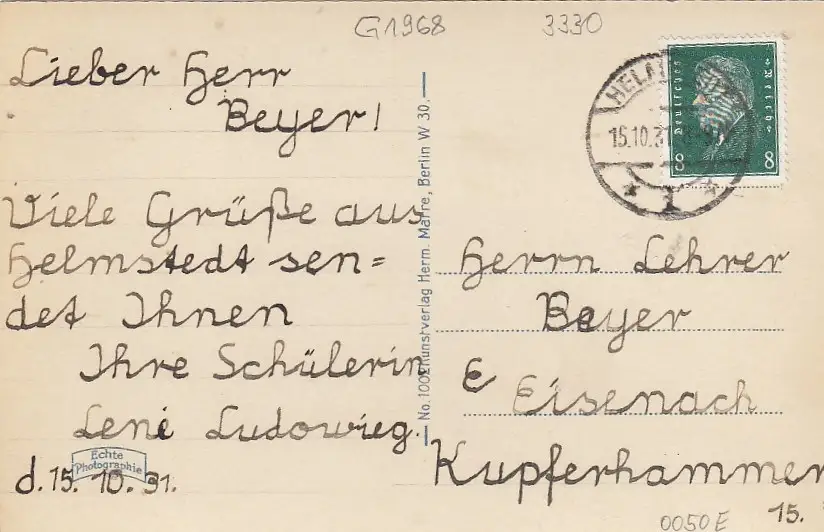 G1968 3330
Lieber Herr
Beyer!
Viele Grüße aus
Helmstedt sen=
det Ihnen
Ihre Schülerin
Leni Ludowieg.
d. 15. 10. 31.
Echte
Photographie
No. 1002 Kunstverlag Herm. Berlin W 30.
Deutsches Reich
8 8
15.10.31
1
Herrn Lehrer
Beyer
E Eisenach
Kupferhammer
15.
0050E